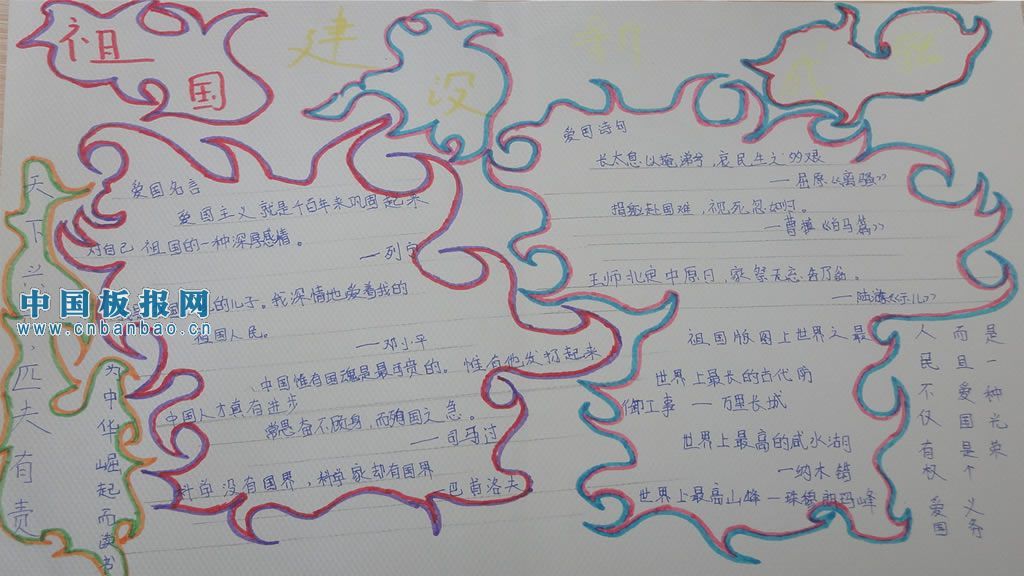 祖国
建设
爱国名言
爱国主义就是千百年来巩固起来
对自己祖国的一种深厚感情。
—列宁
的儿子。我深情地爱着我的
祖国人民。
—邓小平
中国惟有国魂是最可贵的。惟有他发扬起来
中国人才真有进步
常思奋不顾身,而殉国之急。
—司马迁
科学没有国界,科学家却有国界
巴甫洛夫
天下兴亡,匹夫有责
为中华崛起而读书
中国板报网
www.cnbanbao.cn
爱国诗句
长太息以掩涕兮,哀民生之多艰
—屈原《离骚》
捐躯赴国难,视死忽如归。
—曹植《白马篇》
王师北定中原日,家祭无忘告乃翁。
—陆游《示儿》
祖国版图上世界之最
世界上最长的古代防
御工事—万里长城
世界上最高的咸水湖
—纳木错
世界上最高山峰—珠穆朗玛峰
人民不仅有权爱国
而且爱国是个义务
是一种光荣